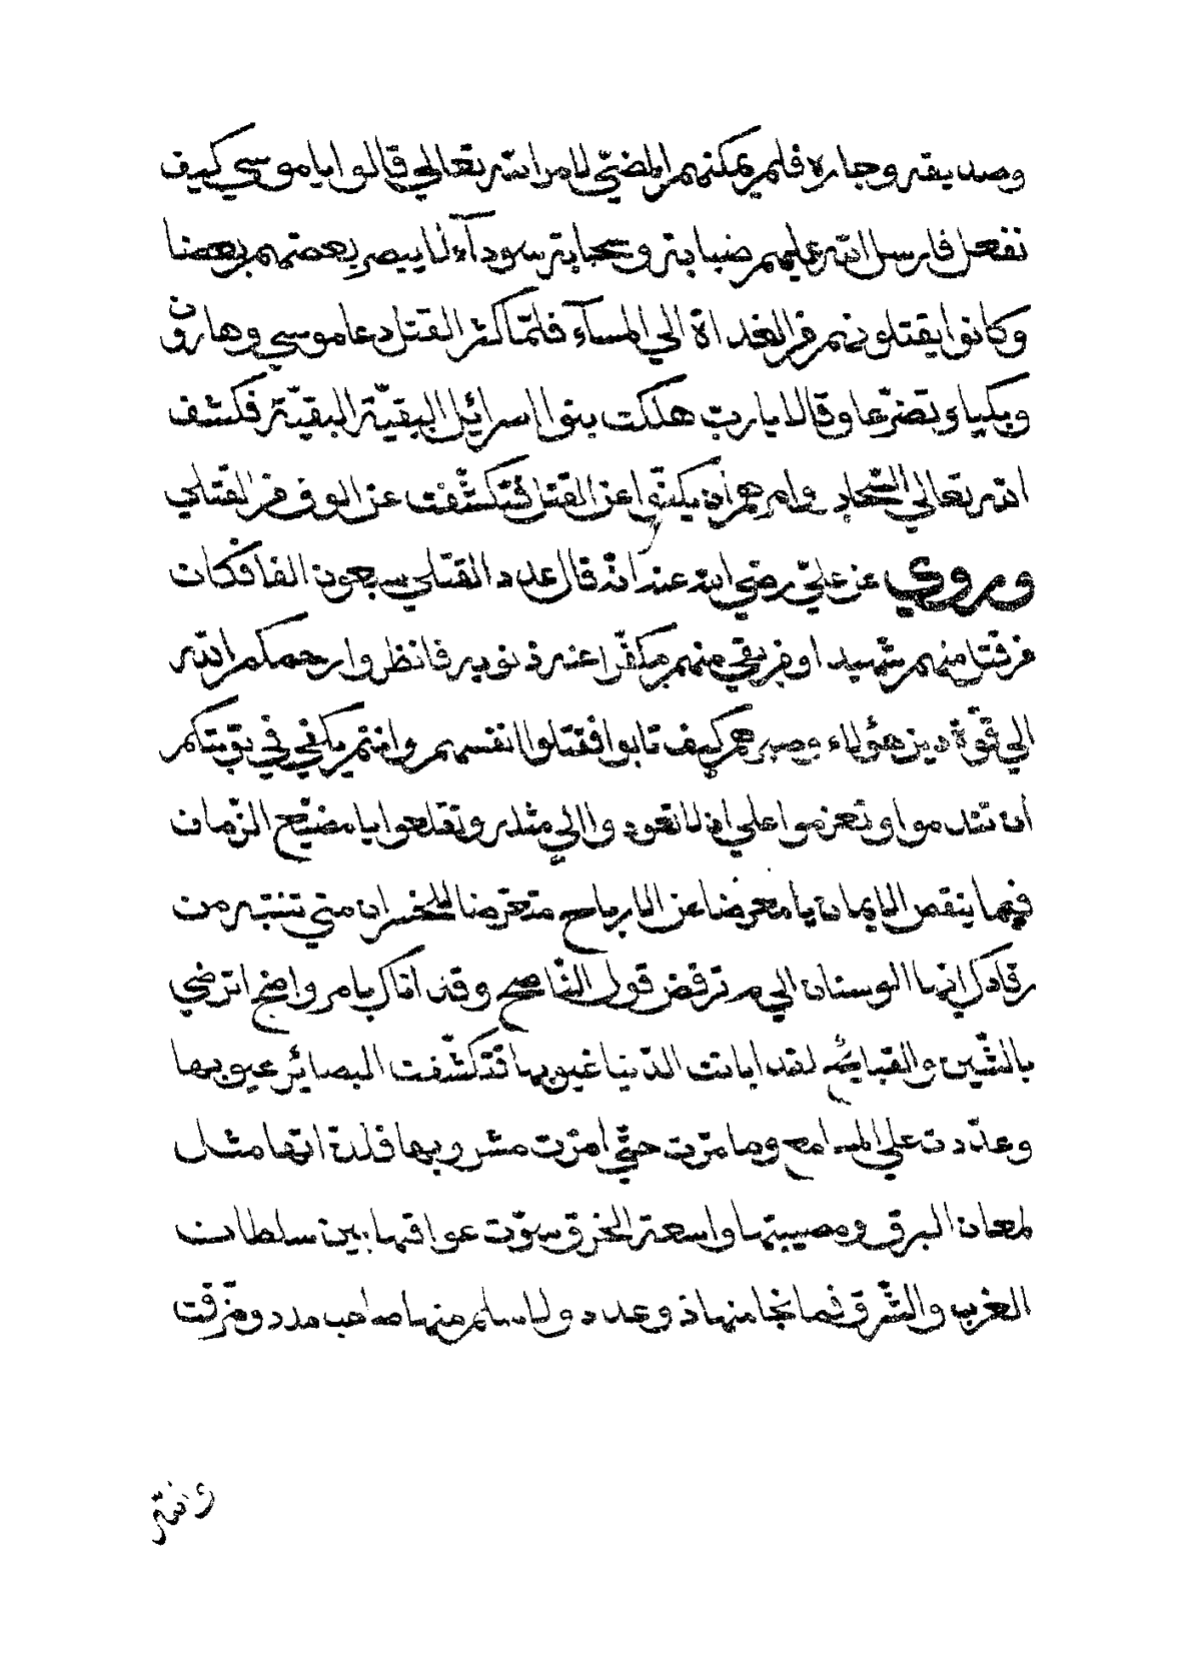 وصديقه وجاره فلم يمكنهم المضيّ لامر الله تعالي قالوا يا موسي كيف
نفعل فارسل الله عليهم ضبابة وسحابة سودآء لا يبصر بعضهم بعضا
وكانوا يقتلونهم من الغداة الي المسآء فلمّا كثر القتل دعا موسي وهارون
وبكيا وتضرّعا وقالا يا ربّ هلكت بنوا إسرائيل البقيّة البقيّة فكشف
الله تعالي السّحاب وامرهم أن يكفّوا عن القتل فتكشّفت عن الوف من القتلي
وروي عن عليّ رضي الله عنه انّه قال عدد القتلي سبعون الفا فكان
من قتل منهم شهيد او من بقي منهم مكفّرا عنه ذنوبه فانظروا رحمكم الله
الي قوّة دين هؤلاء وصبرهم كيف تابوا فقتلوا انفسهم وانتم يكفي في توبتكم
أن تندموا وتعزموا علي ان لا تعودوا الي مثله وتقلعوا يا مضيّع الزّمان
فيما ينقص الايمان يا معرضا عن الارباح متعرّضا للخسران متي تنتبه من
رقادك ايها الوسنان الي م ترفض قول النّاصح وقد اتاك بامر واضح اترضي
بالشّين والقبايح لقد ابانت الدّنيا عيوبها فتكشّفت البصائر عيوبها
وعدّدت علي المسامع وما مرّت حتّي امرّت مشروبها فلذة اتها مثل
لمعان البرق ومصيبتها واسعة الخرق سوّت عواقبها بين سلطان
الغرب والشّرق فما نجا منها ذو عدد ولا سلم منها صاحب مدد ومزقت